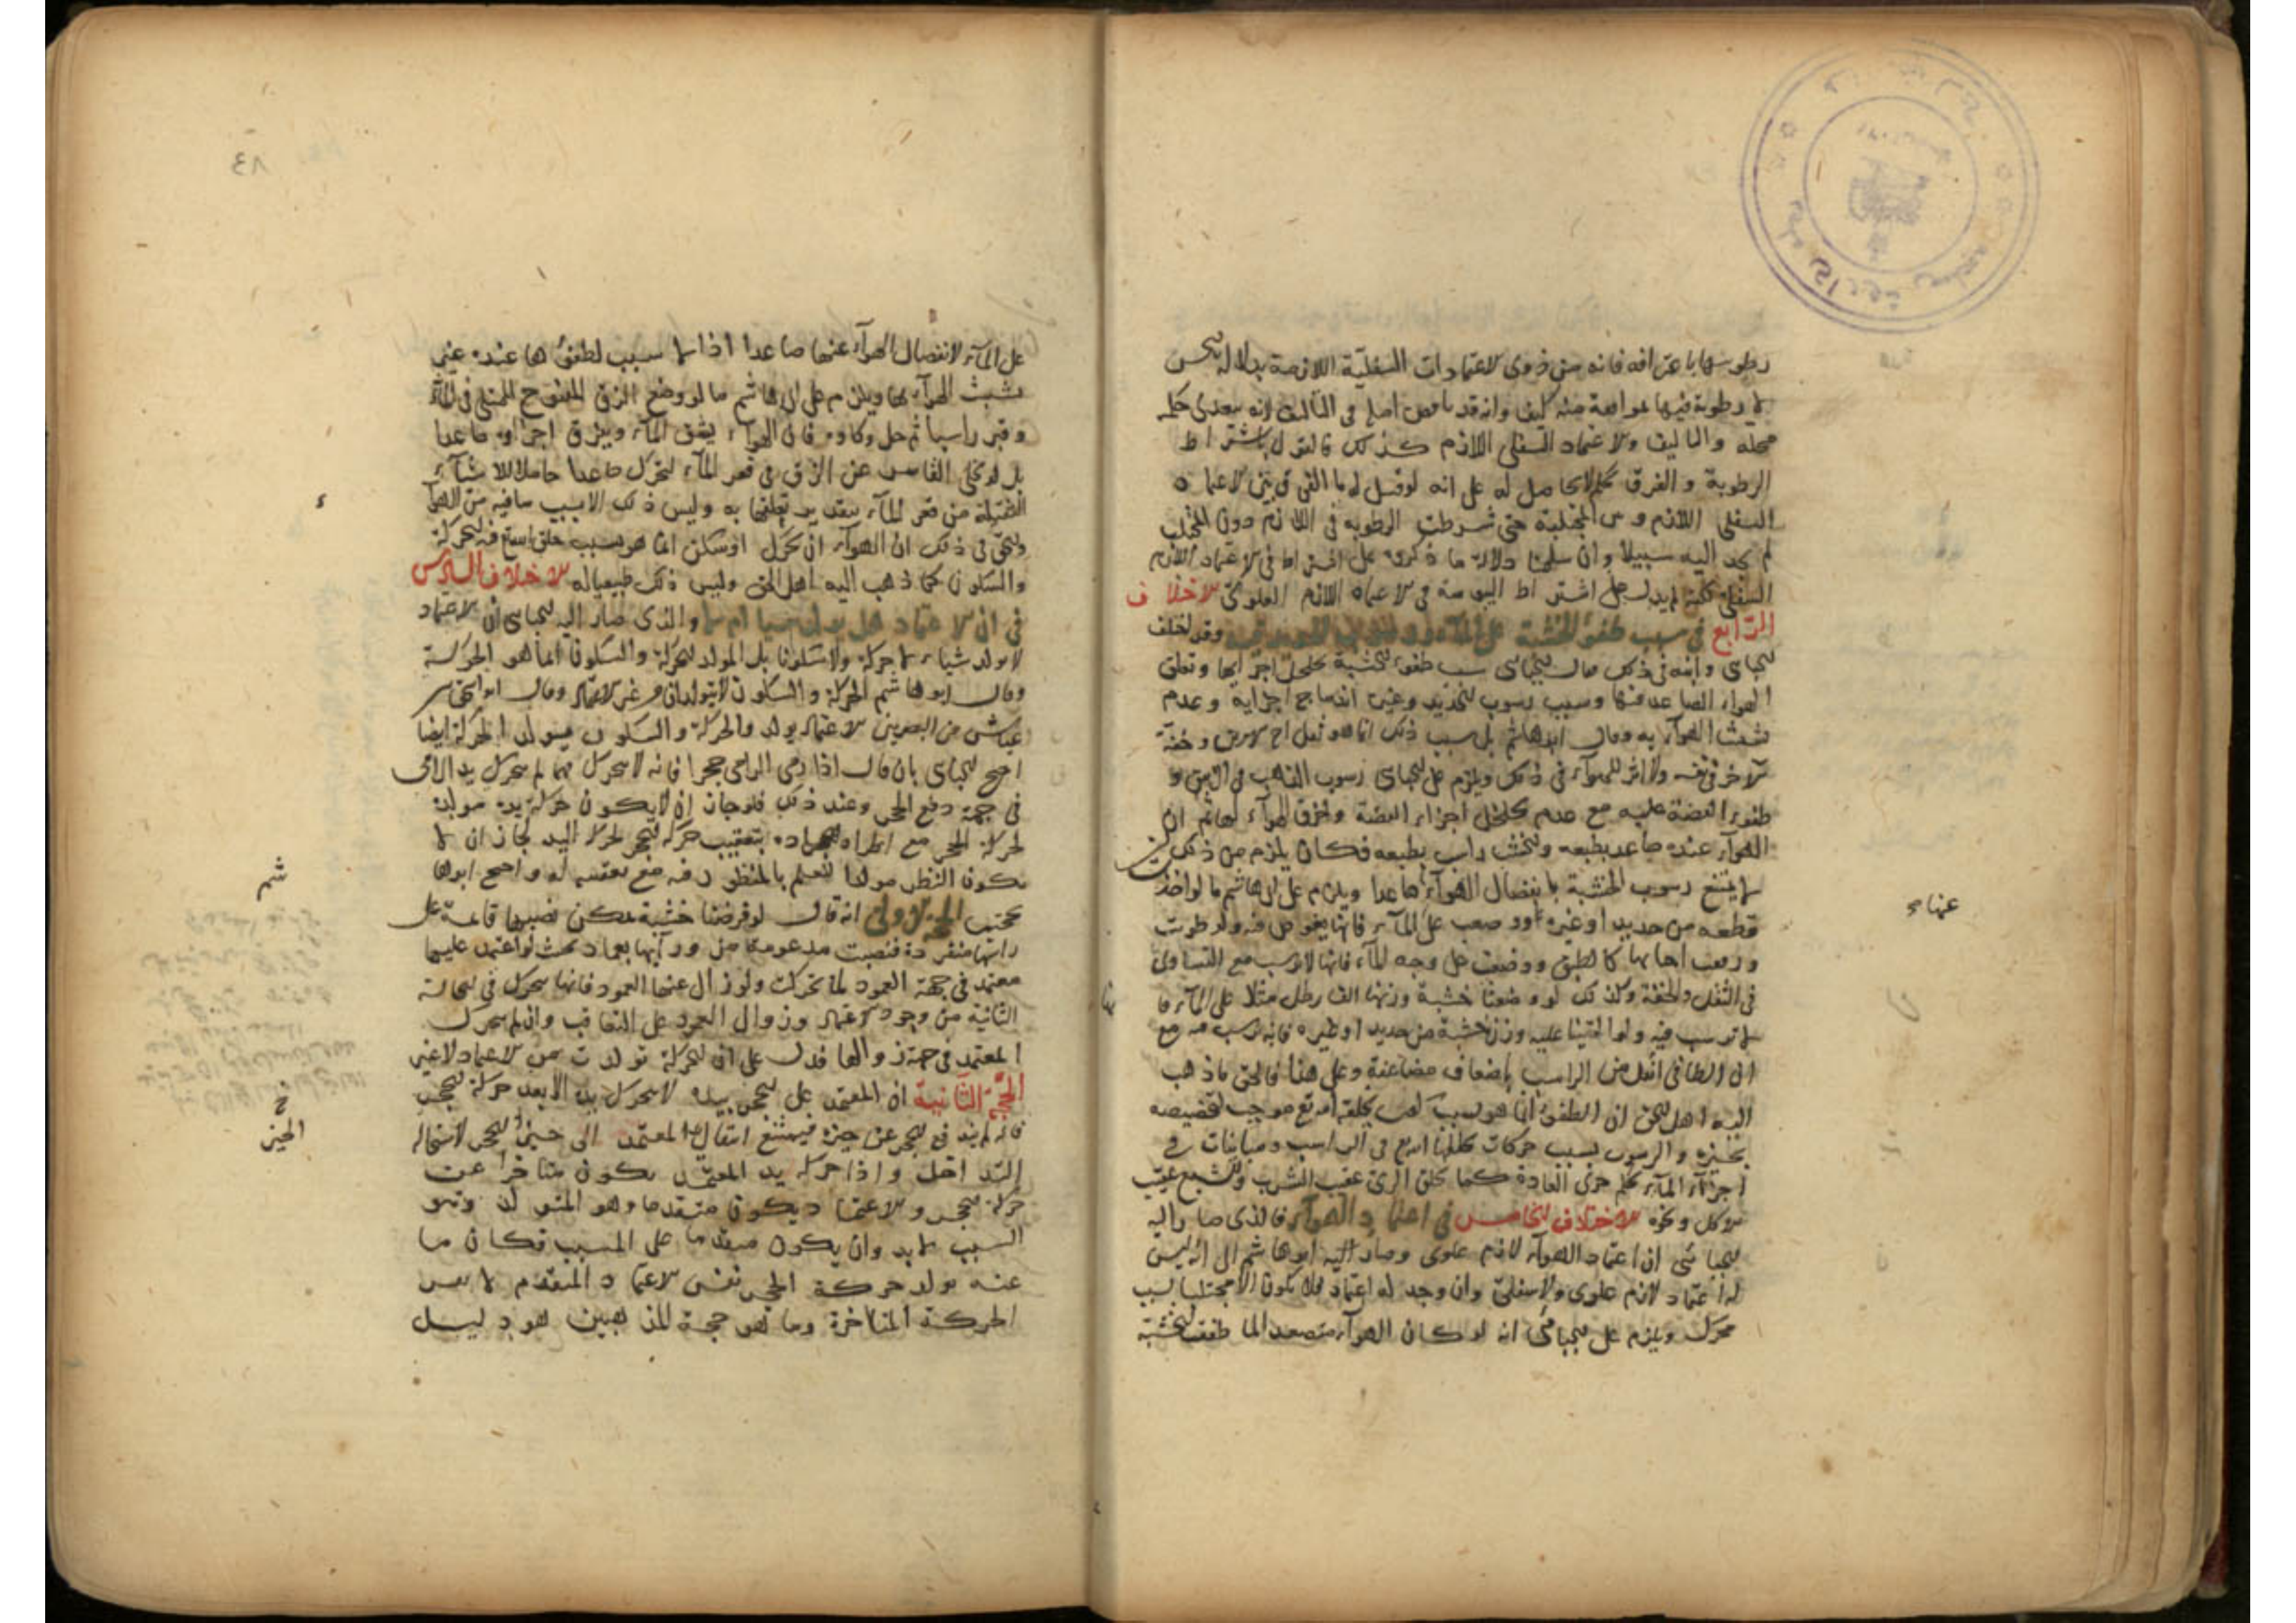 رطوبتها باعترافه فانه من ذوى الاعتمادات السفلية اللازمة بدلالة الحس
لا رطوبة فيها لموافقة منه كيف وانه قد ناقض اصله فى التاليف انه يتعدى حكم
محله والتاليف والاعتماد السفلى اللازم كذلك فالقول باشتراط
الرطوبة والفرق تحكم لا حاصل له على انه لو قيل له ما الفرق بين الاعتماد
السفلى اللازم و بين المجتلبة حتى شرطت الرطوبة فى اللازم دون المجتلب
لم يجد اليه سبيلا وان سلمنا دلالة ما ذكره على اشتراط فى الاعتماد اللازم
السفلى اشتراط اليبوسة فى الاعتماد اللازم العلوى الاختلاف
الرابع فى سبب طفو الخشبة على الماء ورسوب الحديد فيه وقد اختلف
الجباى وابنه فى ذلك فقال الجباى سبب طفو الخشبة تخلخل اجزائها وتعلق
الهواء الصاعد فيها وسبب رسوب الحديد وغيره اندماج اجزايه وعدم
تشبث الهواء به وقال ابو هاشم بل سبب ذلك انما هو ثقل احد الامرين وخفة
الآخر فى نفسه ولا اثر للهواء فى ذلك ويلزم على الجباى رسوب الذهب فى الزيبق و
طفو الفضة عليه مع عدم تخلخل اجزاء الفضة وتخرق الهواء لها ثم ان
الهواء عنده صاعد بطبعه والخشب راسب بطبعه فكان يلزم من ذلك ان
لا يمتنع رسوب الخشبة بانفصال الهواء صاعدا ويلزم على ابى هاشم ما لو اخذ
قطعة من حديد او غيره ووضعت على الماء فانها تغوص فيه ولو طرقت
ورفعت كالطبق ووضعت على وجه الماء فانها لا ترسب مع التساوى
فى الثقل والخفة وكذلك لو وضعنا خشبة وزنها الف رطل مثلا على الماء فا
لا ترسب فيه ولو القينا عليه وزن خشبة من حديد او غيره فانه يرسب فيه مع
ان الطافى اثقل من الراسب باضعاف مضاعفة وعلى هذا فالحق ما ذهب
اليه اهل الحق ان الطفو انما هو بسبب يخلقه الله تع موجب لتخصيصه
بحيزه والرسوب بسبب حركات يخلقها الله تع فى الراسب ومباينات فى
اجزاء الماء بحكم جرى العادة كما يخلق الرى عقيب الشرب والشبع عقيب
الاكل ونحوه الاختلاف الخامس فى اعتماد الهواء فالذى صار اليه
الجبائى ان اعتماد الهواء لازم علوى وصار ابنه ابو هاشم الى انه ليس
له اعتماد لازم علوى ولا سفلى وان وجد له اعتماد فلا يكون الا مجتلبا بسبب
محرك ويلزم على الجبائى انه لو كان الهواء متصعدا لما طفت الخشبة
عنها
٨٣
على الماء لانفصال الهواء عنها صاعدا اذ لا سبب لطفوها عنده غير
تشبث الهواء بها ويلزم على ابى هاشم ما لو وضع الزق المنفوخ الممتلى فى الماء
وقر راسبا ثم حل وكاوه فان الهواء يشق الماء ويخرق اجزاوه صاعدا
بل لو خلى القاسر عن الزق فى قعر الماء لتحرك صاعدا حاملا للاشياء
الثقيلة من قعر الماء بتقدير تعلقها به وليس ذلك الا بسبب ما فيه من الهواء
والحق فى ذلك ان الهواء ان تحرك او سكن انما هو بسبب خلق الله تع فيه الحركة
والسكون كما ذهب اليه اهل الحق وليس ذلك طبيعيا له الاختلاف السادس
فى ان الاعتماد هل يولد شيئا ام لا والذى صار اليه الجباى ان الاعتماد
لا يولد شيا لا حركة ولا سكونا بل المولد للحركة والسكون انما هو الحركة
وقال ابو هاشم الحركة والسكون لا يتولدان من غير الاعتماد وقال ابو اسحق بن
عياش من البصريين الاعتماد يولد والحركة والسكون فيتولد الحركة ايضا
احتج الجباى بان قال اذا رمى الرامى حجرا فانه لا يتحرك مهما لم يتحرك يد الرامى
فى جهة دفع الحجر وعند ذلك فلو جاز ان لا يكون حركة يده مولدة
لحركة الحجر مع اطراد العادة بتعقيب حركة الحجر لحركة اليد لجاز ان لا
يكون النظر مولدا للعلم بالمنظور فيه مع تعقبه له واحتج ابو ها
بحجتين الحجة الاولى انه قال لو فرضنا خشبة يمكن نصبها قائمة على
راسها منفردة فنصبت مدعومة من ورايها بعماد بحيث لو اعتمد عليها
معتمد فى جهة العمود لما تحركت ولو زال عنها العمود فانها تتحرك فى الحالة
الثانية من وجود الاعتماد وزوال العمود على التعاقب وان لم يتحرك
المعتمد فى جهة زوالها فدل على ان الحركة تولدت من الاعتماد لا غير
الحجة الثانية ان المعتمد على الحجر بيده لا يتحرك يده الا بعد حركة الحجر
فانه لم يندفع الحجر عن حيزه فيمتنع انتقال المعتمد الى حيز الحجر لاستحالة
التداخل واذا حركة يد المعتمد يكون متاخرا عن
حركة الحجر والاعتماد يكون متقدما وهو المتولد وهو
السبب لابد وان يكون متقدما على المسبب فكان ما
عنه تولد حركة الحجر نفس الاعتماد المتقدم لا نفس
الحركة المتاخرة وما هو حجة للمذهبين هو دليل
شم
خ
الحيز